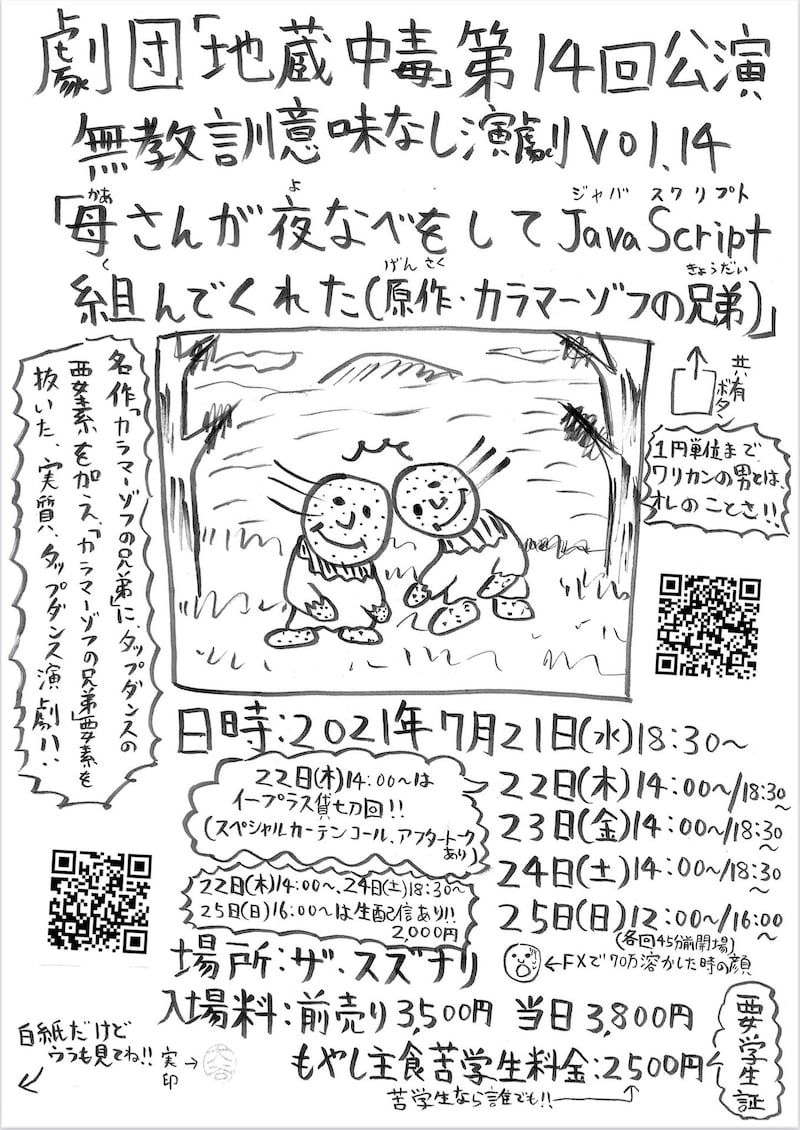 劇団「地蔵中毒」第14回公演
無教訓意味なし演劇vol.14
かあ よ ジャバ スクリプト
「母さんが夜なべをしてJavaScript
く げんさく きょうだい
組んでくれた(原作・カラマーゾフの兄弟)」
名作「カラマーゾフの兄弟」に、タップダンスの
要素を加え、「カラマーゾフの兄弟」要素を
抜いた、実質、タップダンス演劇!!
共有
ボタン
1円単位まで
ワリカンの男とは、
オレのことさ!!
日時:2021年7月21日(水)18:30~
22日(木)14:00~/18:30~
23日(金)14:00~/18:30~
24日(土)14:00~/18:30~
25日(日)12:00~/16:00~
(各回45分前開場)
22日(木)14:00~は
イープラス貸切回!!
(スペシャルカーテンコール、アフタートーク
あり)
22日(木)14:00~、24日(土)18:30~
25日(日)16:00~は生配信あり!!
2,000円
場所:ザ・スズナリ
←FXで70万溶かした時の顔
入場料:前売り3,500円 当日3,800円
もやし主食苦学生料金:2500円
苦学生なら誰でも!!
要学生証
白紙だけど
ウラも見てね!!
実印→